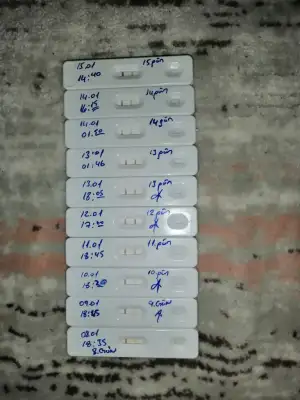 15.01 15gün
14:40
14.01 14gün
16:15
14.01 14gün
01:30
13.01 13gün
01:46
13.01 13gün
18:05
12.01 12gün
17:30
11.01 11gün
18:45
10.01 10gün
09.01 9.Gün
18:25
08.01
18:35
8.Gün